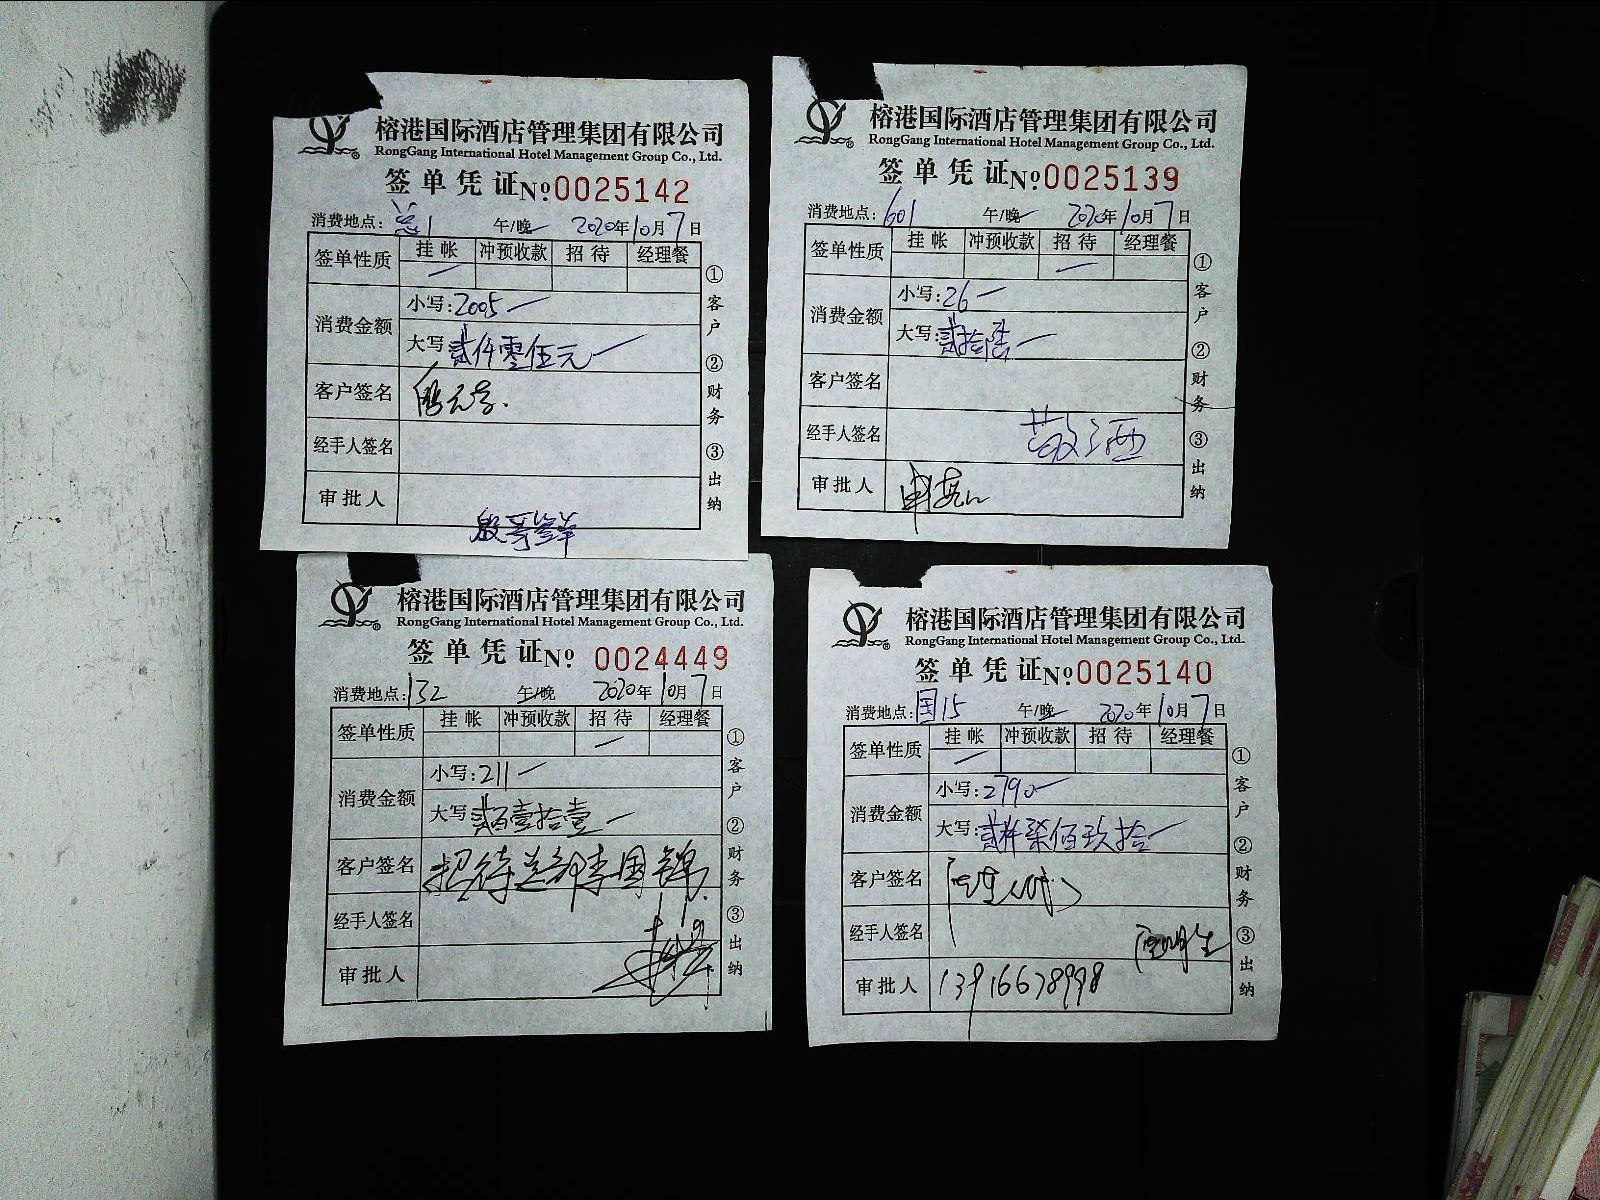 榕港国际酒店管理集团有限公司
RongGang International Hotel Management Group Co., Ltd.
签单凭证 № 0025142
消费地点: 1 午/晚 2020年10月7日
签单性质 挂帐 冲预收款 招待 经理餐
消费金额
小写: 2005
大写 贰仟零伍元
客户签名
经手人签名
审批人
①客户 ②财务 ③出纳
榕港国际酒店管理集团有限公司
RongGang International Hotel Management Group Co., Ltd.
签单凭证 № 0025139
消费地点: 601 午/晚 2020年10月7日
签单性质 挂帐 冲预收款 招待 经理餐
消费金额
小写: 26
大写: 贰拾陆
客户签名
经手人签名 敬酒
审批人
①客户 ②财务 ③出纳
榕港国际酒店管理集团有限公司
RongGang International Hotel Management Group Co., Ltd.
签单凭证 № 0024449
消费地点: 132 午/晚 2020年10月7日
签单性质 挂帐 冲预收款 招待 经理餐
消费金额
小写: 211
大写 贰佰壹拾壹
客户签名 招待 李国锦
经手人签名
审批人
①客户 ②财务 ③出纳
榕港国际酒店管理集团有限公司
RongGang International Hotel Management Group Co., Ltd.
签单凭证 № 0025140
消费地点: 国15 午/晚 2020年10月7日
签单性质 挂帐 冲预收款 招待 经理餐
消费金额
小写: 2790
大写: 贰仟柒佰玖拾
客户签名
经手人签名
审批人 13916638998
①客户 ②财务 ③出纳